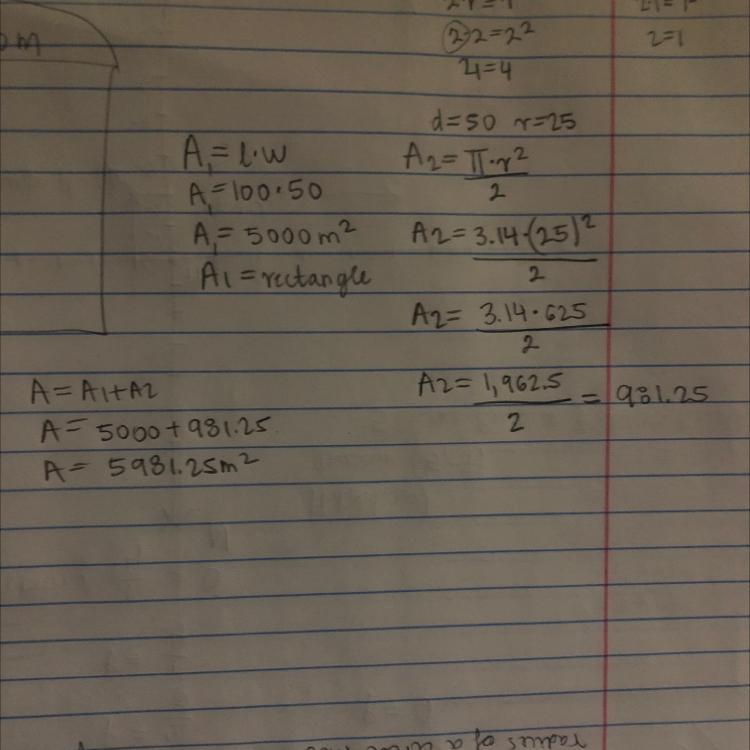 2·2=2²
2=1
4=4
om
d=50 r=25
A₁=l·w
A₁=100·50
A₁=5000m²
A1=rectangle
A2=π·r²/2
A2=3.14·(25)²/2
A2=3.14·625/2
A2=1,962.5/2=981.25
A=A1+A2
A=5000+981.25
A=5981.25m²
radius of a